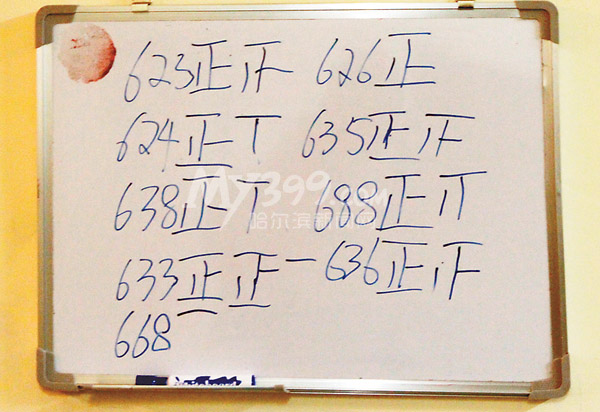 623正正 626正
624正T 635正正
638正T 688正
633正正一 636正正
668
MY399.com
哈尔滨新闻网